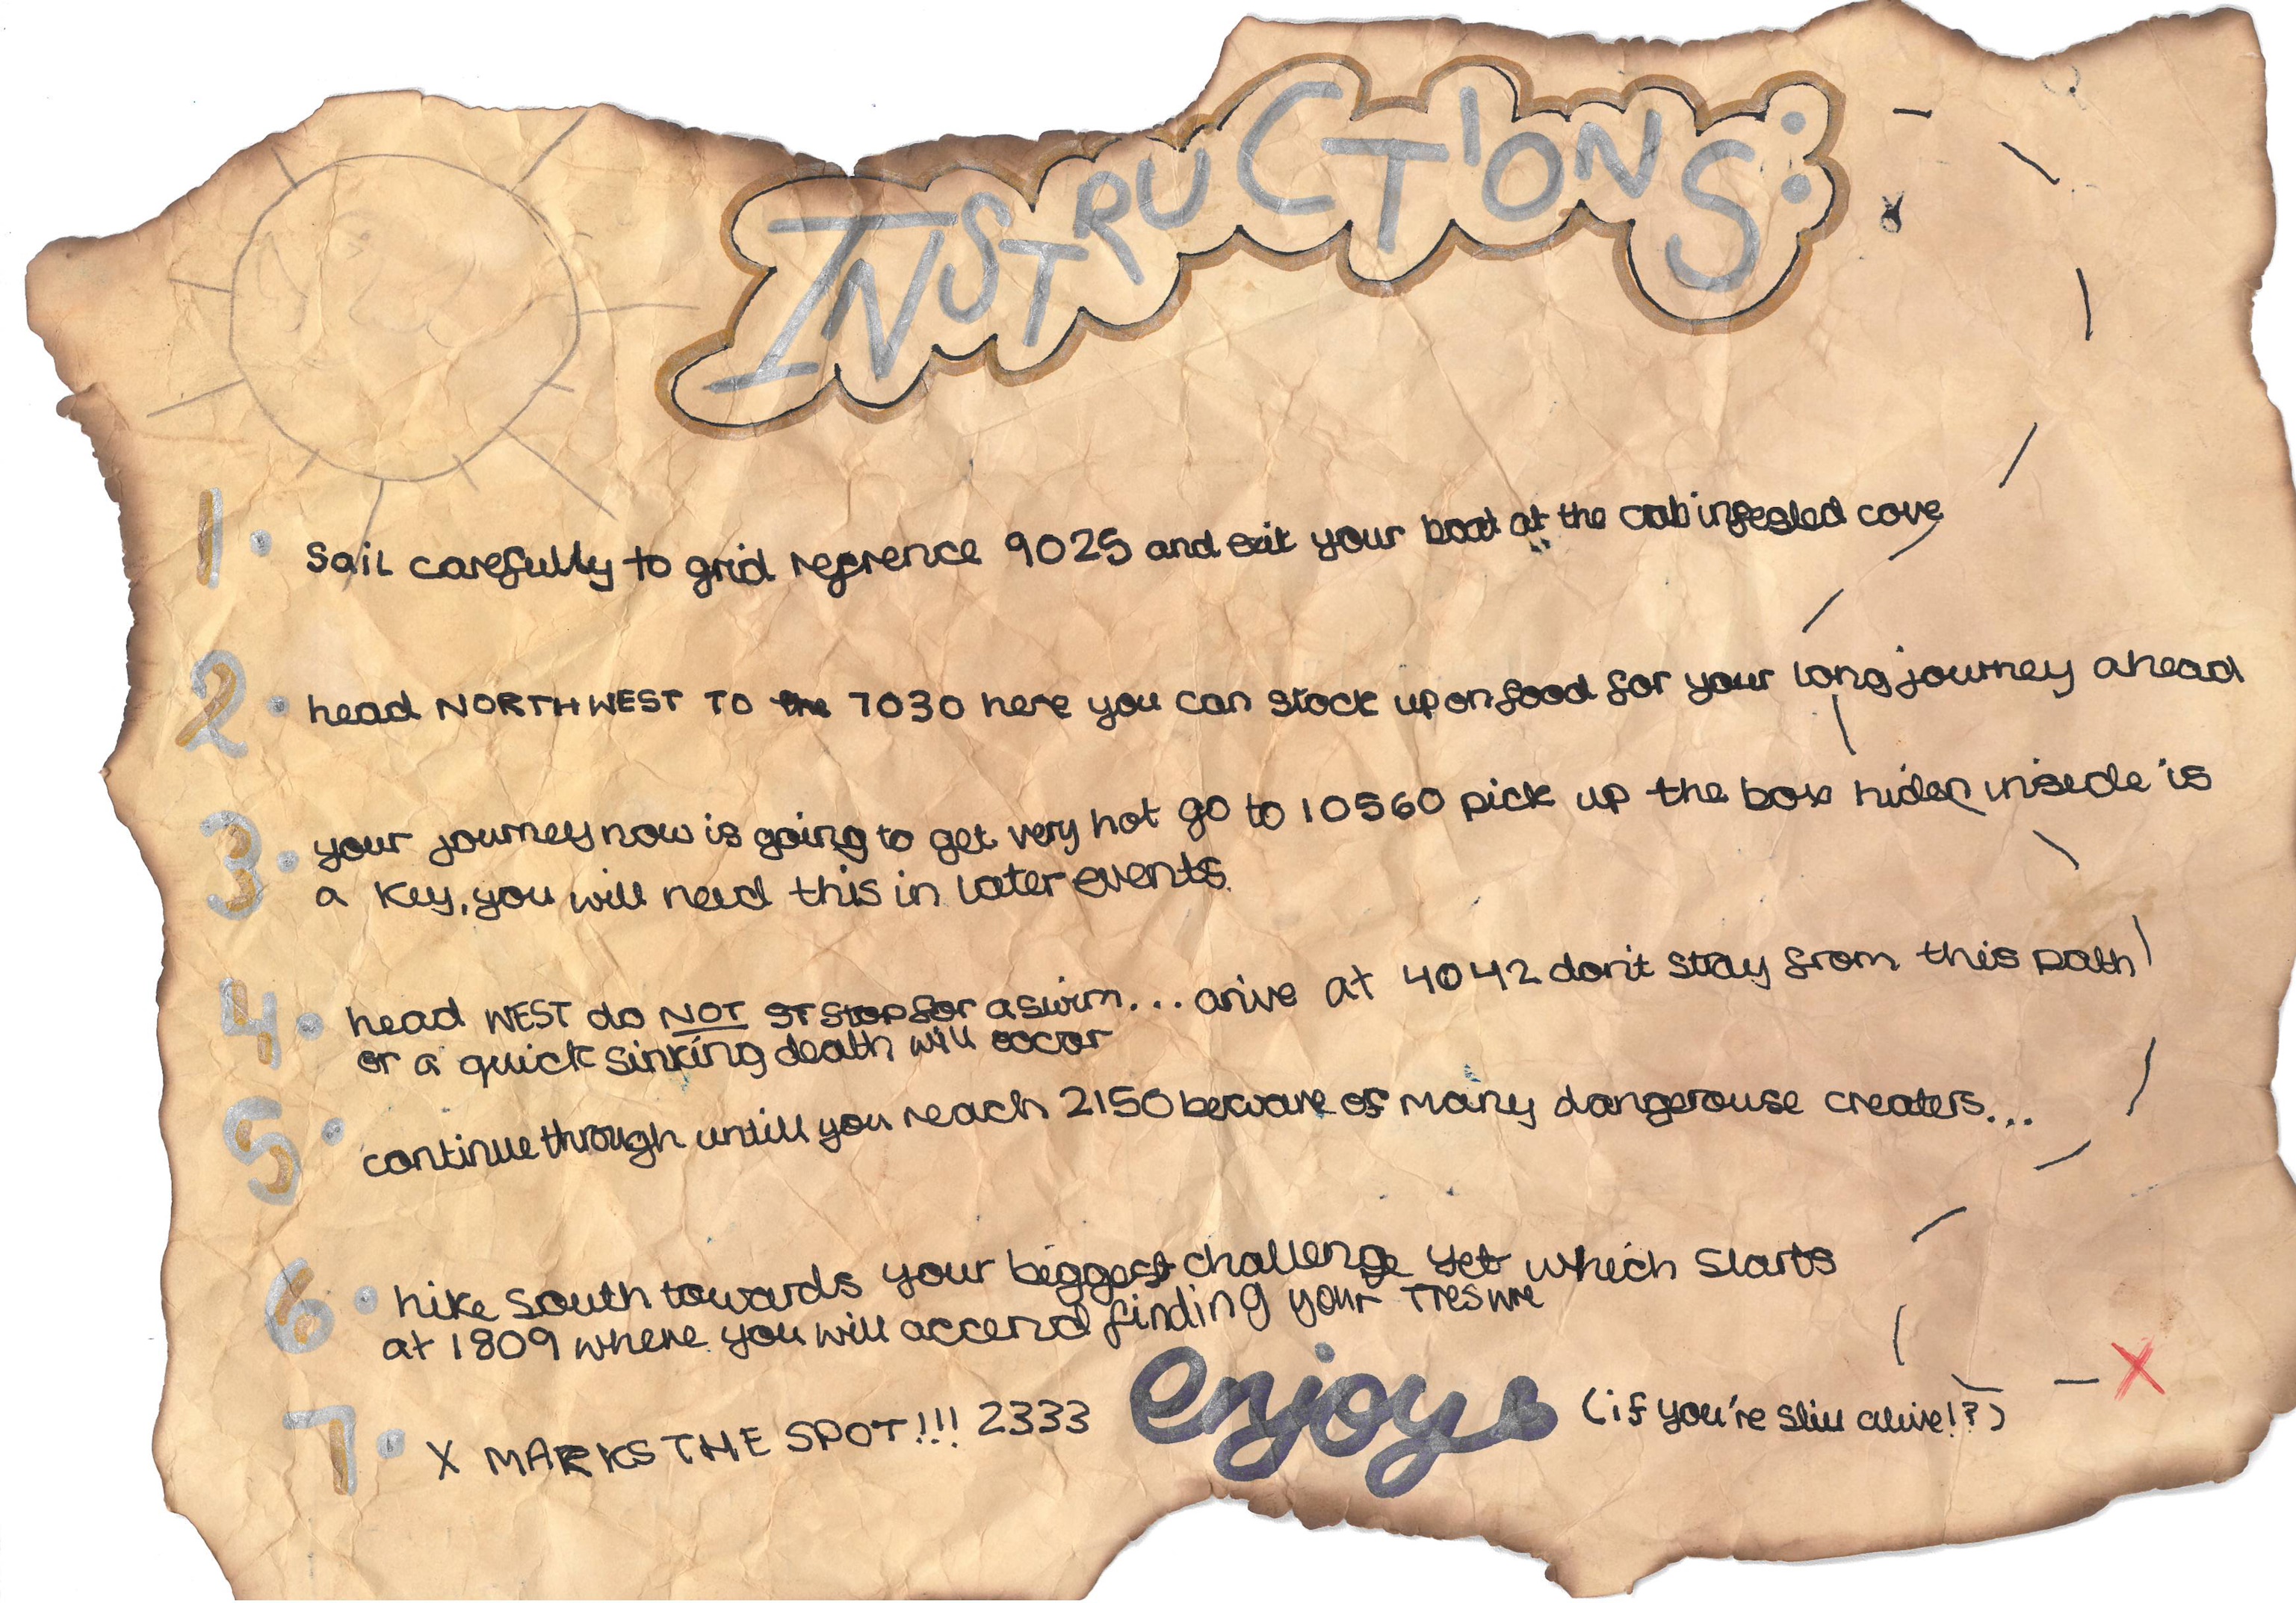 INSTRUCTIONS:
1. Sail carefully to grid refrence 9025 and exit your boat at the crab infested cove
2. head NORTH WEST TO the 7030 here you can stock up on food for your long journey ahead
3. your journey now is going to get very hot go to 10560 pick up the box hiden insede is
a key, you will need this in later events.
4. head WEST do NOT ST stop for a swim... arive at 4042 don't stray from this path
or a quick sinking death will occor
5. continue through untill you reach 2150 beware of many dangerouse creaters...
6. hike south towards your biggest challenge yet which starts
at 1809 where you will accend finding your Tresure
7. X MARKS THE SPOT!!! 2333 enjoy (if you're still alive!?)
X